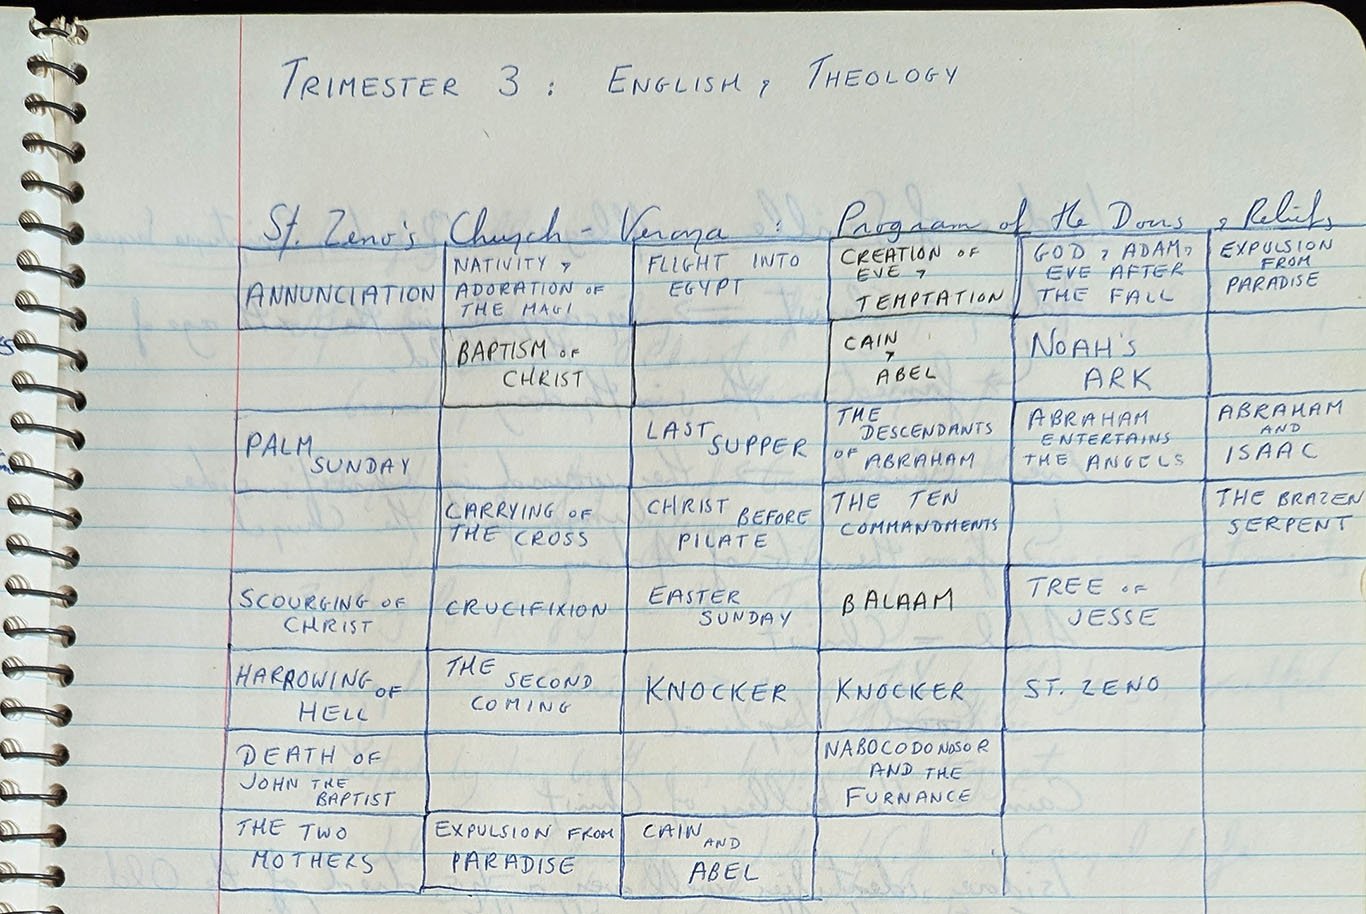 TRIMESTER 3 : ENGLISH & THEOLOGY
St. Zeno's Church - Verona : Program of the Doors & Reliefs
ANNUNCIATION
NATIVITY &
ADORATION OF
THE MAGI
FLIGHT INTO
EGYPT
CREATION OF
EVE &
TEMPTATION
GOD & ADAM &
EVE AFTER
THE FALL
EXPULSION
FROM
PARADISE
BAPTISM OF
CHRIST
CAIN
&
ABEL
NOAH'S
ARK
PALM
SUNDAY
LAST
SUPPER
THE
DESCENDANTS
OF ABRAHAM
ABRAHAM
ENTERTAINS
THE ANGELS
ABRAHAM
AND
ISAAC
CARRYING OF
THE CROSS
CHRIST BEFORE
PILATE
THE TEN
COMMANDMENTS
THE BRAZEN
SERPENT
SCOURGING OF
CHRIST
CRUCIFIXION
EASTER
SUNDAY
BALAAM
TREE OF
JESSE
HARROWING OF
HELL
THE SECOND
COMING
KNOCKER
KNOCKER
ST. ZENO
DEATH OF
JOHN THE
BAPTIST
NABOCODONOSOR
AND THE
FURNANCE
THE TWO
MOTHERS
EXPULSION FROM
PARADISE
CAIN AND
ABEL